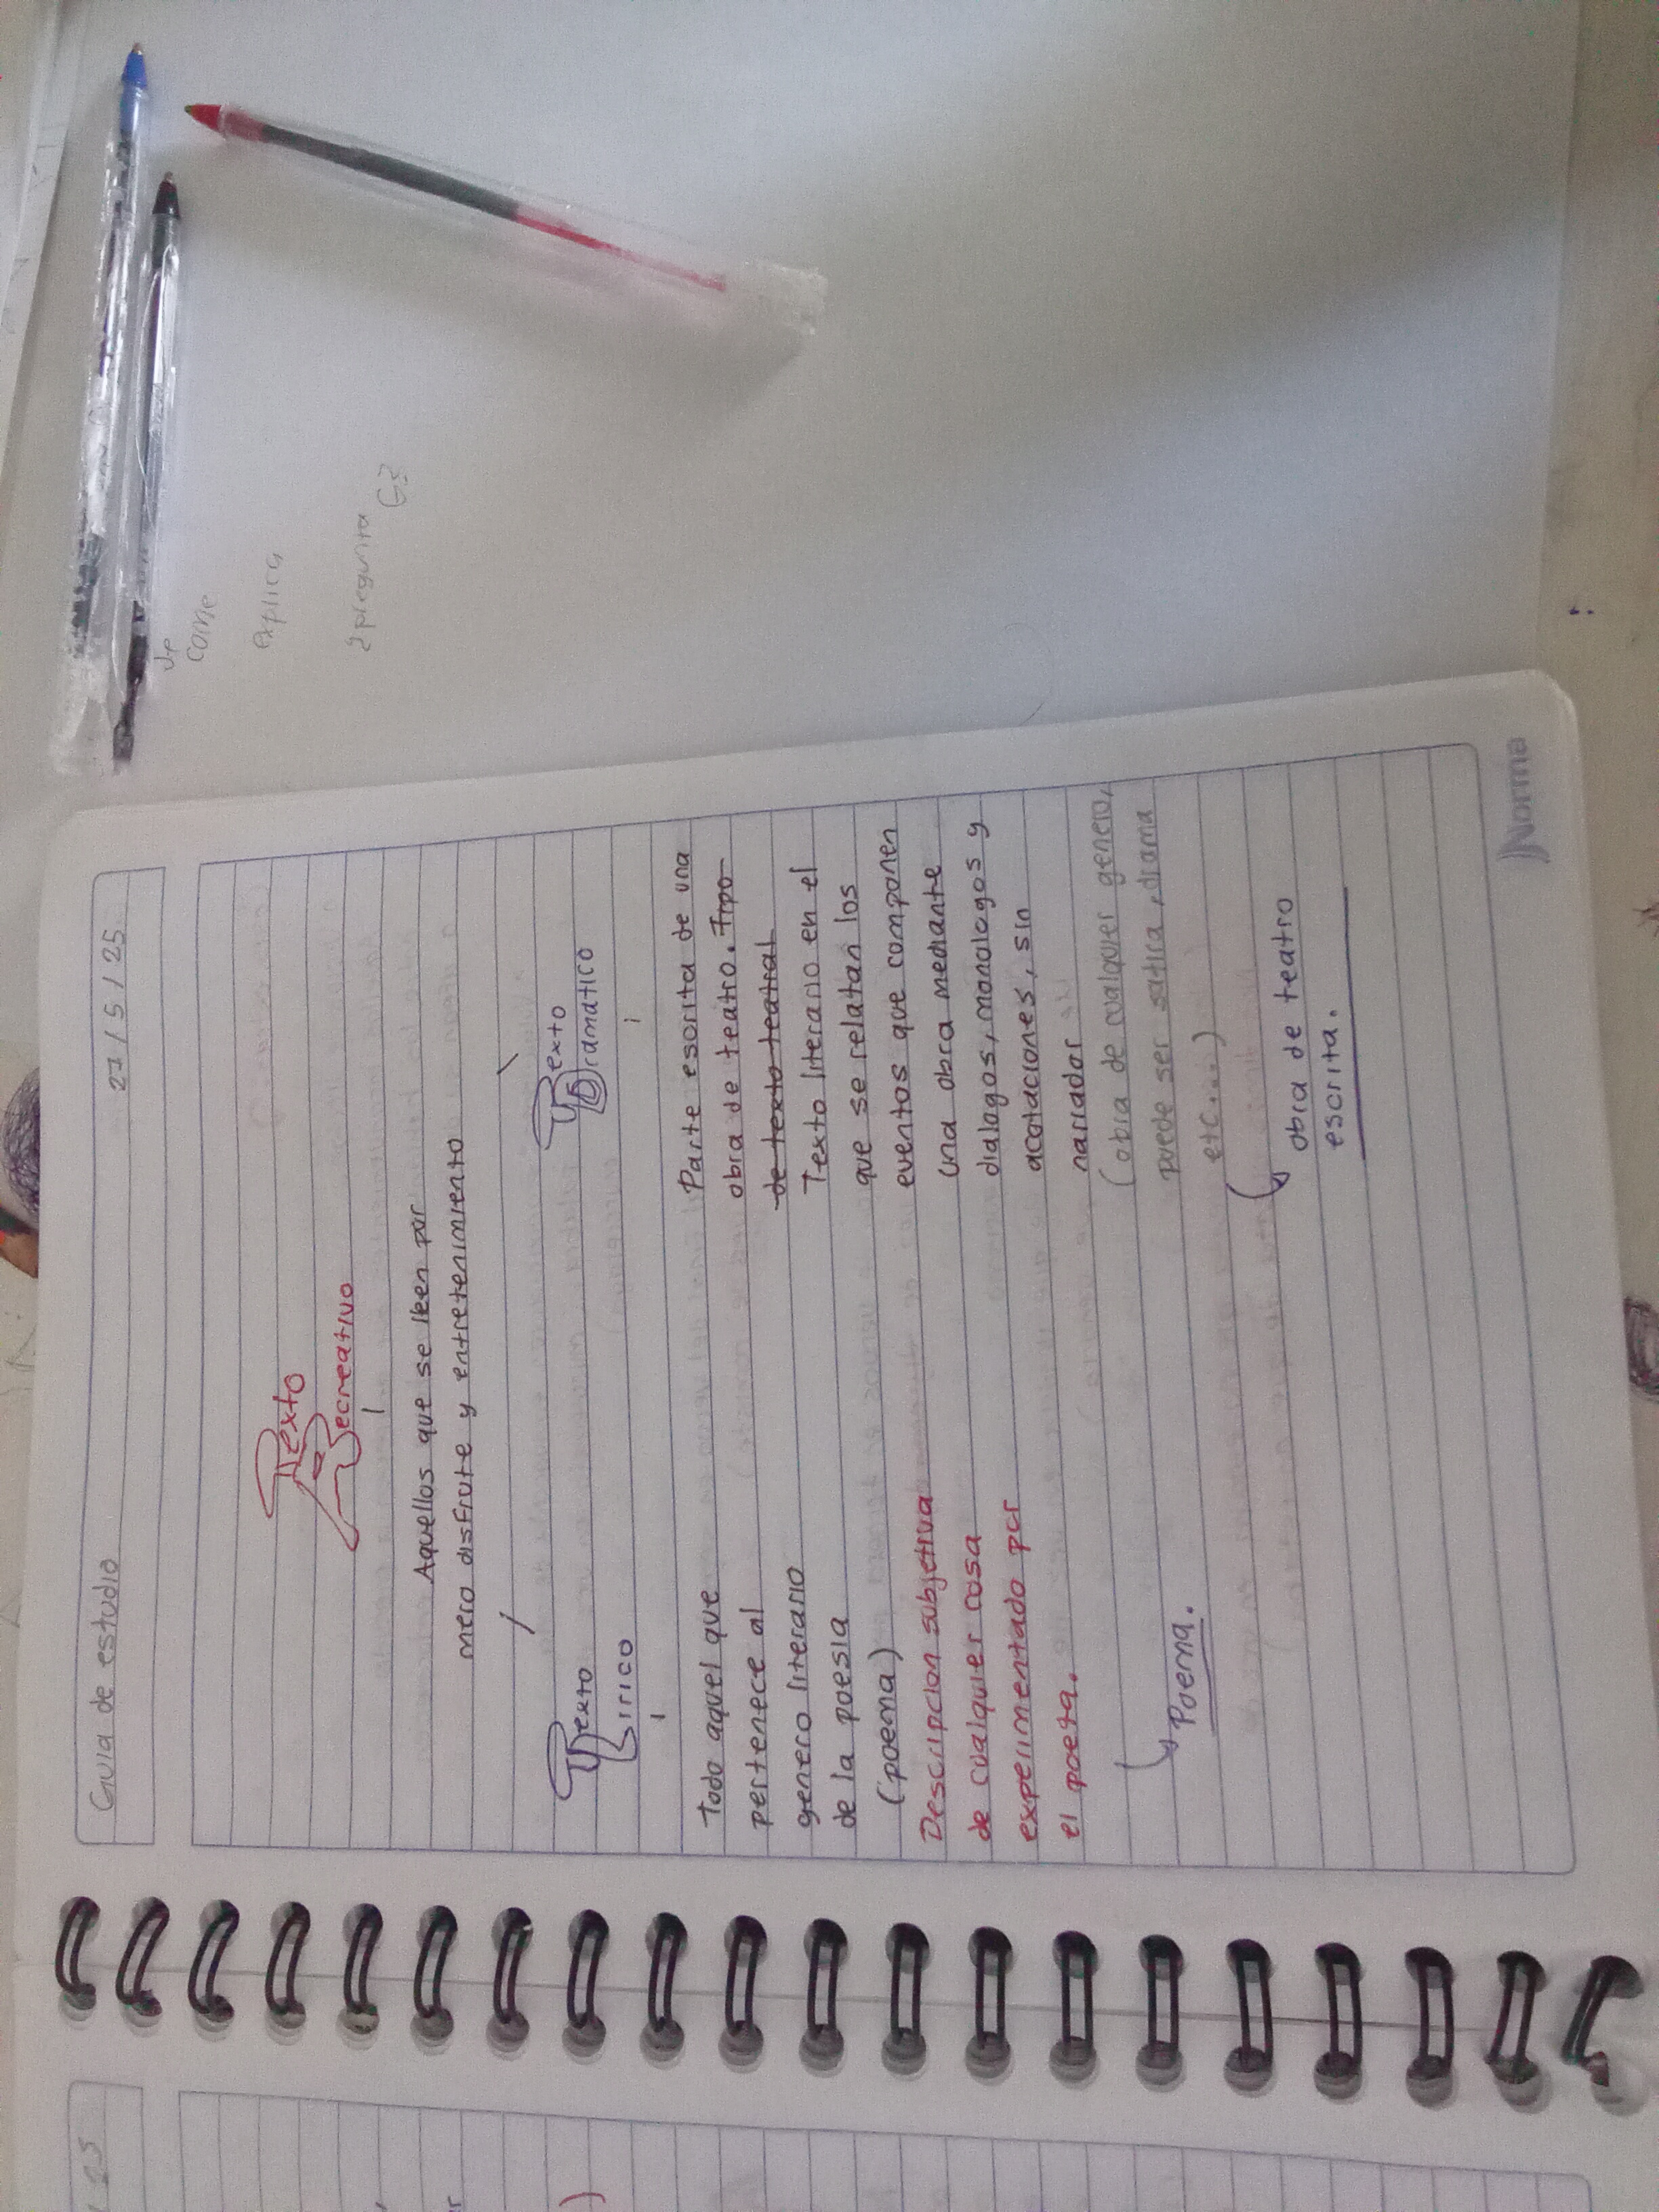 Guia de estudio
27/5/25
Texto
Recreativo
Aquellos que se leen por
mero disfrute y entretenimiento
Texto
Lirico
Todo aquel que
pertenece al
genero literario
de la poesia
(poema)
Descripcion subjetiva
de cualquier cosa
experimentado por
el poeta.
Poema.
Texto
Dramatico
Parte escrita de una
obra de teatro. Tipo
de texto teatral
Texto literario en el
que se relatan los
eventos que componen
una obra mediante
dialagos, monologos y
acotaciones, sin
narrador
(obra de cualquier genero,
puede ser satira, drama
etc....)
obra de teatro
escrita.
Norma
explica
2 pregunta
25